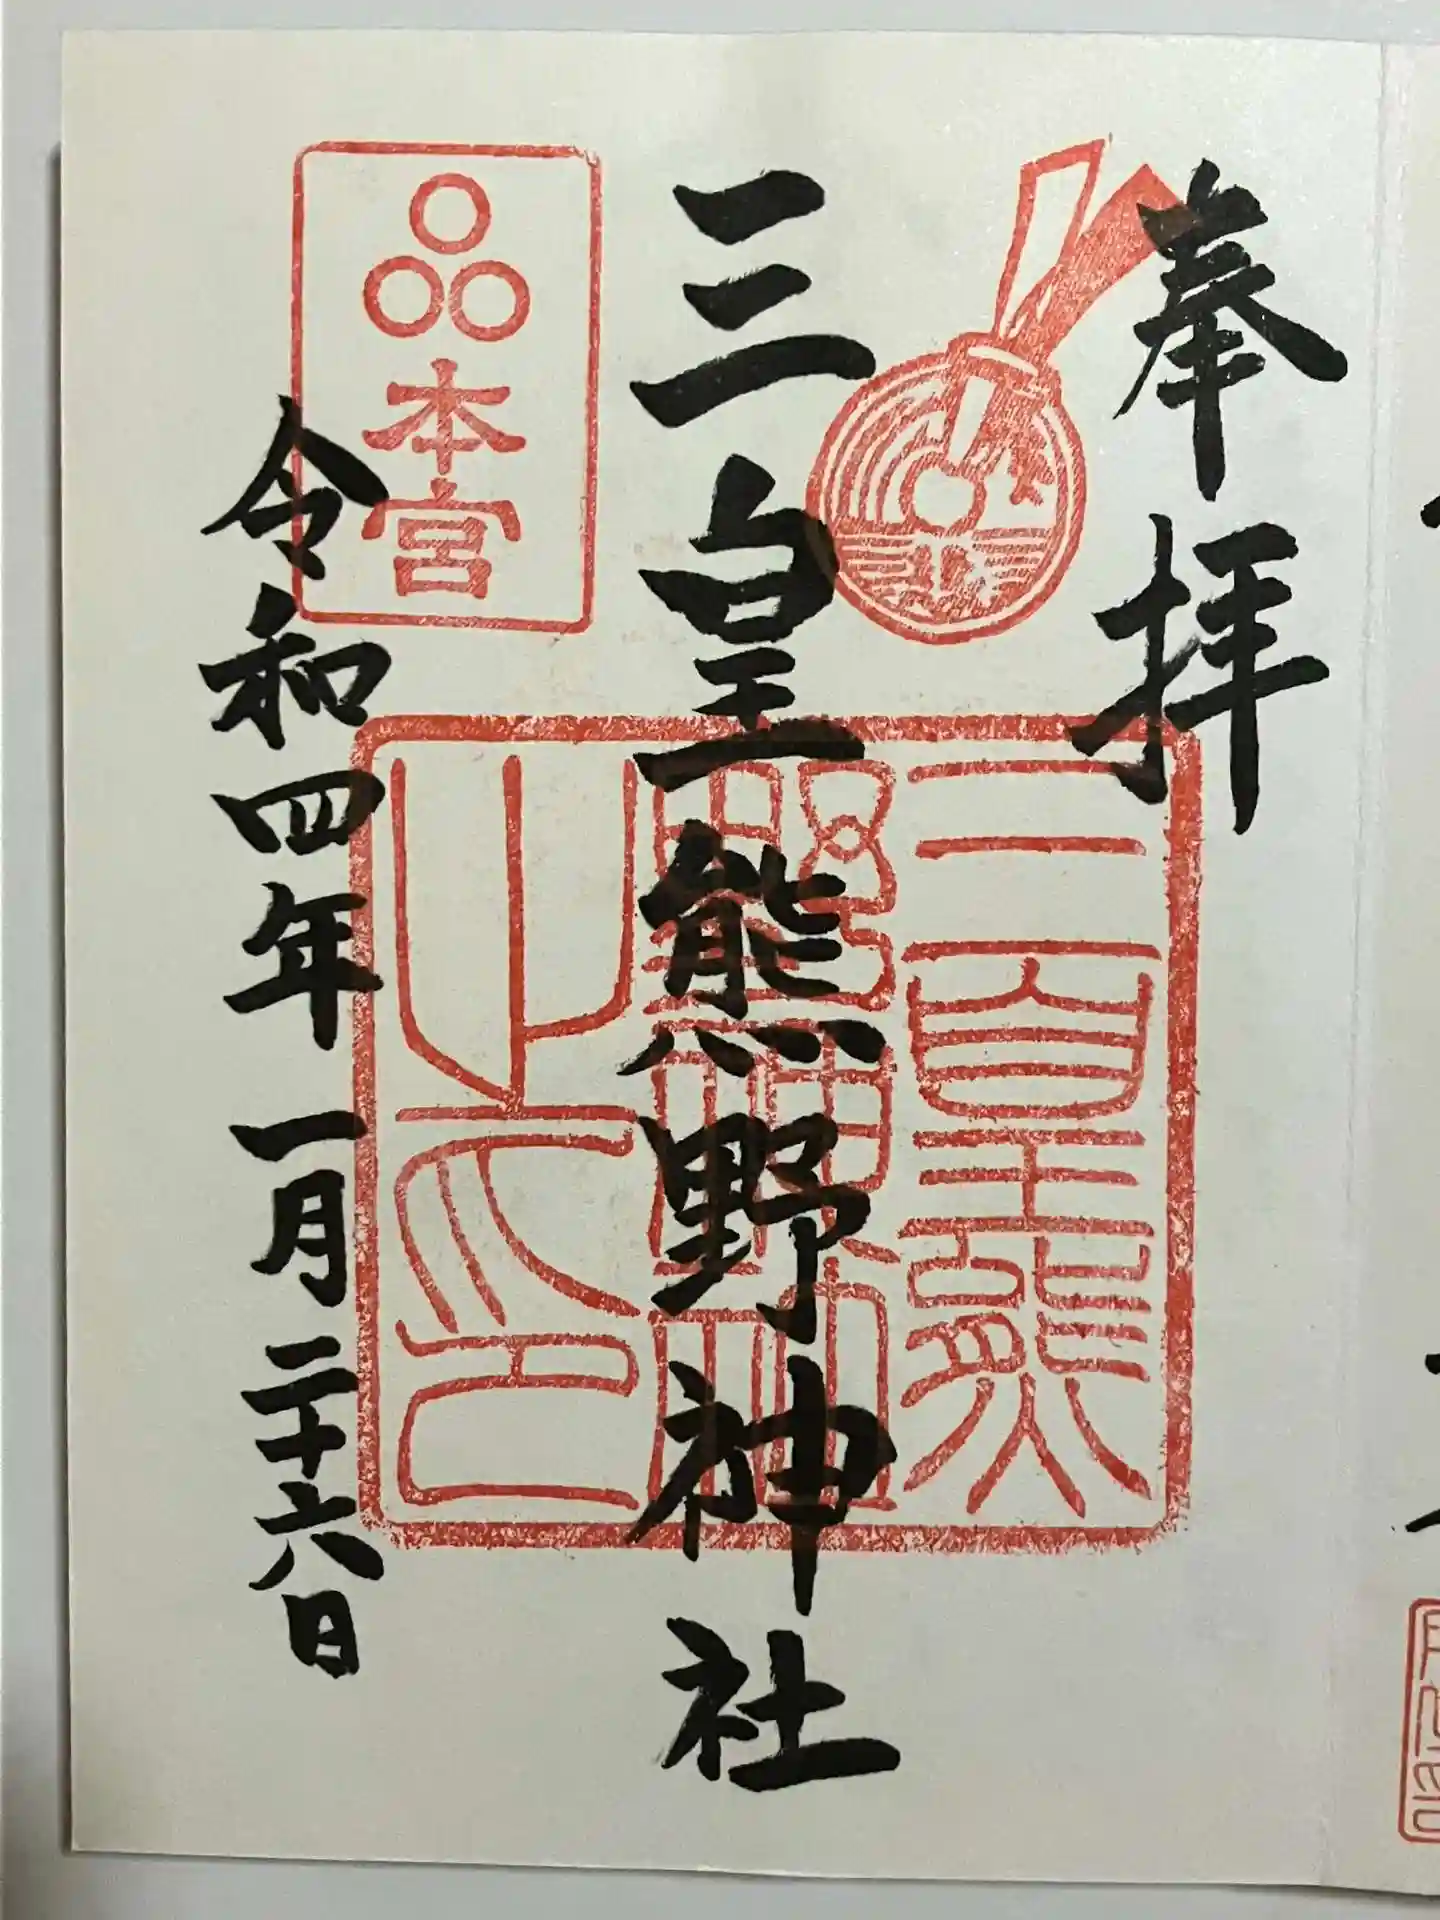 奉拝
三皇熊野神社
本宮
三皇熊
野神社
之印
令和四年一月二十六日